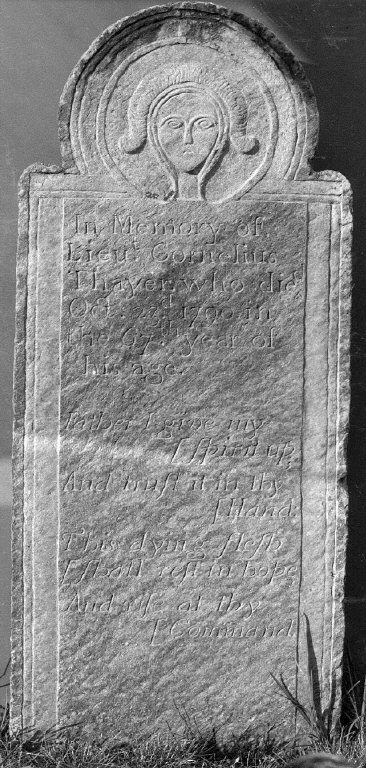 In Memory of
Lieuᵗ Cornelius
Thayer who did
Octʳ 22ᵈ 1790 in
the 67ᵗʰ year of
his age.
Father I give my
[ſpirit up,
And truſt it in thy
[Hand:
This dying fleſh
[ſhall reſt in hope
And riſe at thy
[Command.